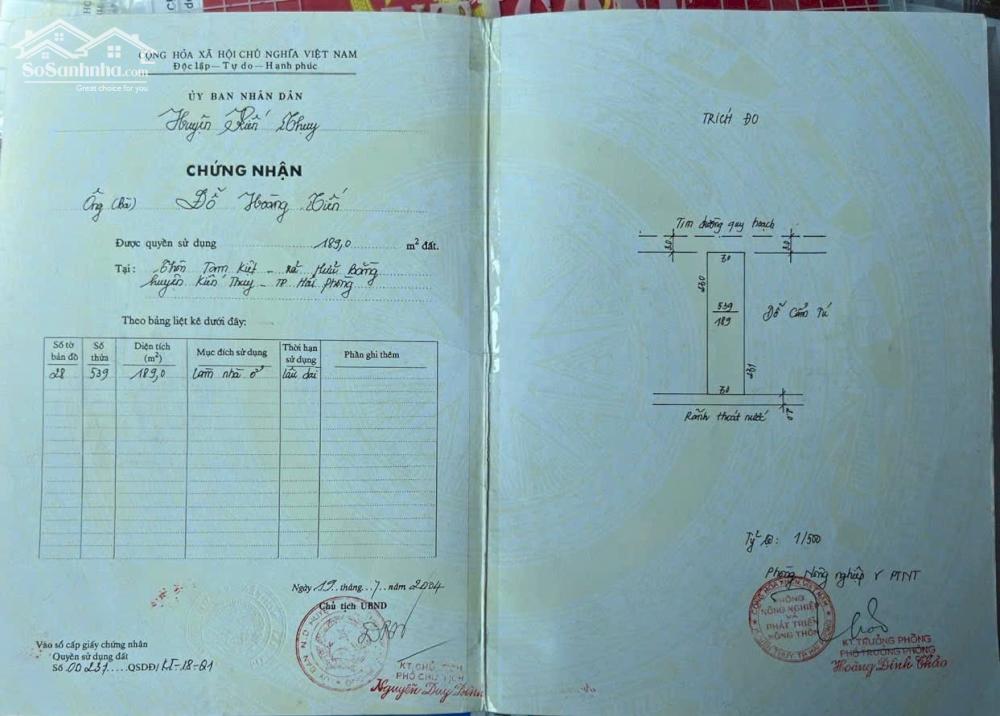 SoSanhnha.com
Great choice for you
CỘNG HÒA XÃ HỘI CHỦ NGHĨA VIỆT NAM
Độc lập — Tự do — Hạnh phúc
ỦY BAN NHÂN DÂN
Huyện Kiến Thụy
CHỨNG NHẬN
Ông (Bà) Đỗ Hoàng Tiến
Được quyền sử dụng 189,0 m² đất.
Tại: Thôn Tam Kiệt - xã Hữu Bằng
huyện Kiến Thụy - TP Hải Phòng
Theo bảng liệt kê dưới đây:
Số tờ bản đồ Số thửa Diện tích (m²) Mục đích sử dụng Thời hạn sử dụng Phần ghi thêm
28 539 189,0 Làm nhà ở lâu dài
Ngày 19 tháng 7 năm 2004
Chủ tịch UBND
KT CHỦ TỊCH
PHÓ CHỦ TỊCH
Nguyễn Duy
Vào sổ cấp giấy chứng nhận
Quyền sử dụng đất
Số 00231 QSDĐ/
TRÍCH ĐO
Tim đường quy hoạch
3.0 3.0
7.0
27.0
539
189
Đỗ Cẩm Tú
27.1
7.0
Rãnh thoát nước
Tỷ lệ: 1/500
Phòng Nông nghiệp & PTNT
PHÒNG
NÔNG NGHIỆP
VÀ
PHÁT TRIỂN
NÔNG THÔN
KT TRƯỞNG PHÒNG
PHÓ TRƯỞNG PHÒNG
Hoàng Đình Thảo